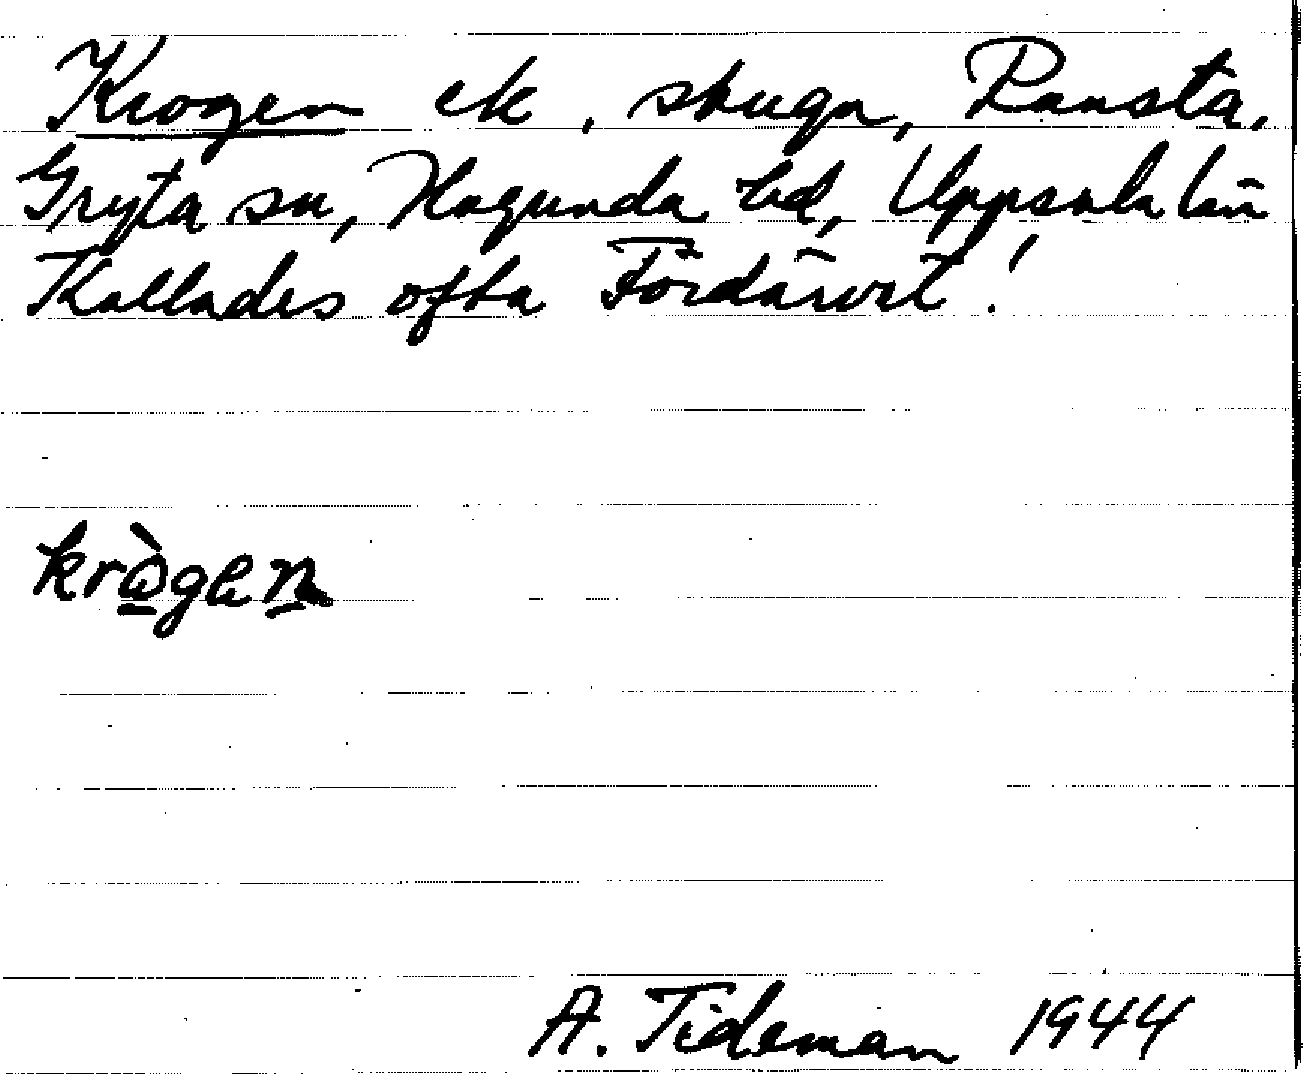 Krogen ek, stuga, Ransta,
Gryta sn, Hagunda hd, Uppsala län
Kallades ofta Fördärvet!
krògen
A. Tideman 1944